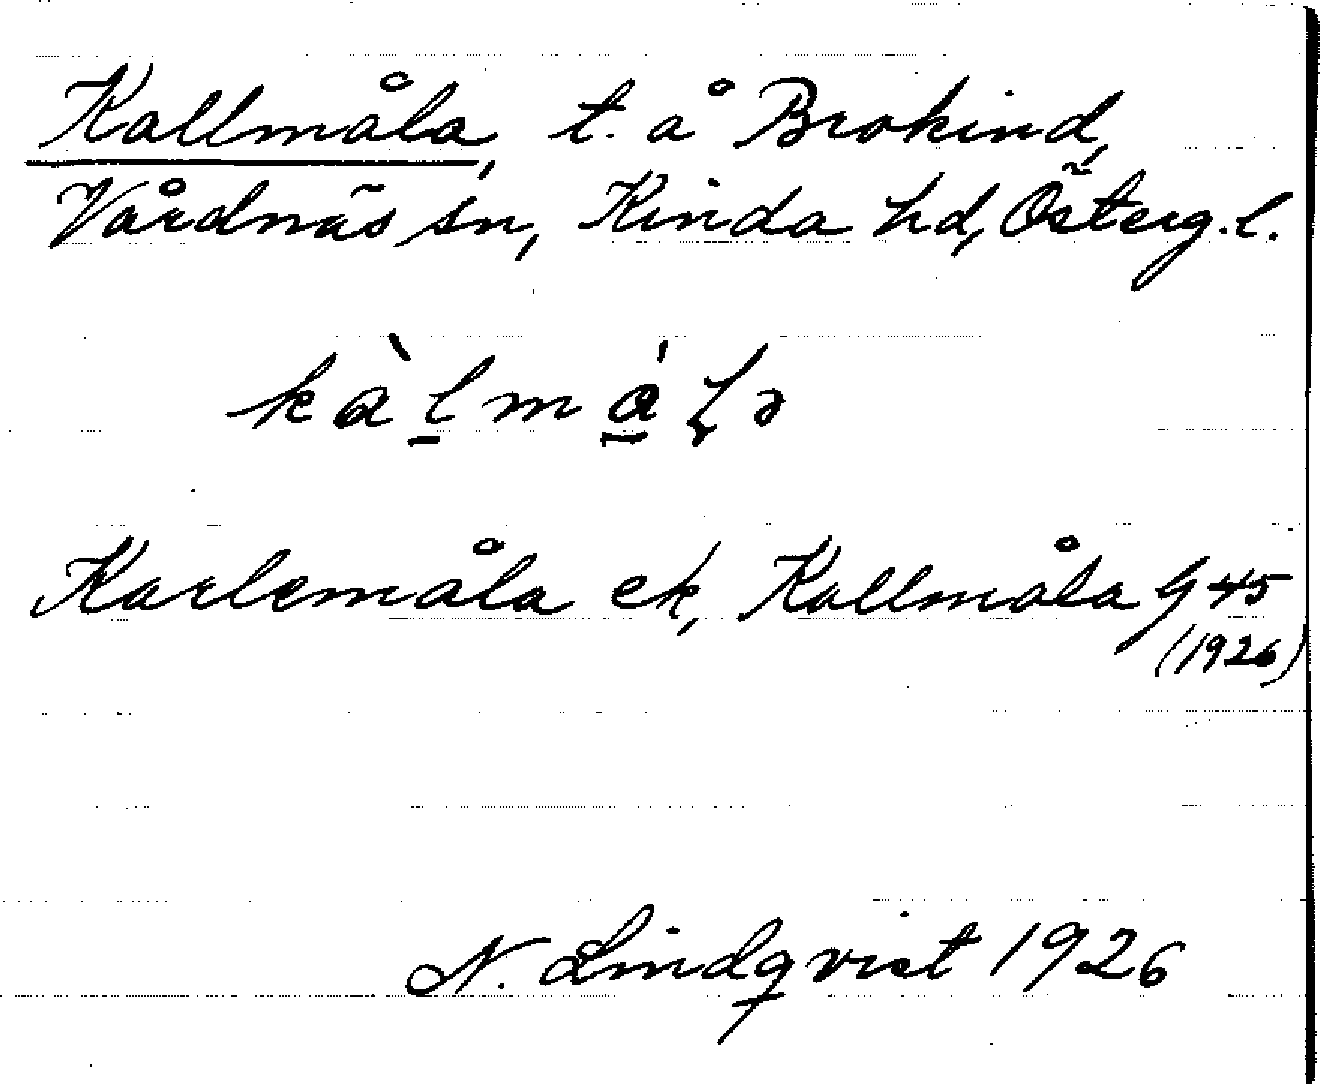 Kallmåla, t. å Brokind,
Vårdnäs sn, Kinda hd, Österg.l.
kàl̲má̲ɭə
Karlemåla ek, Kallmåla G 45
(1926)
N. Lindqvist 1926